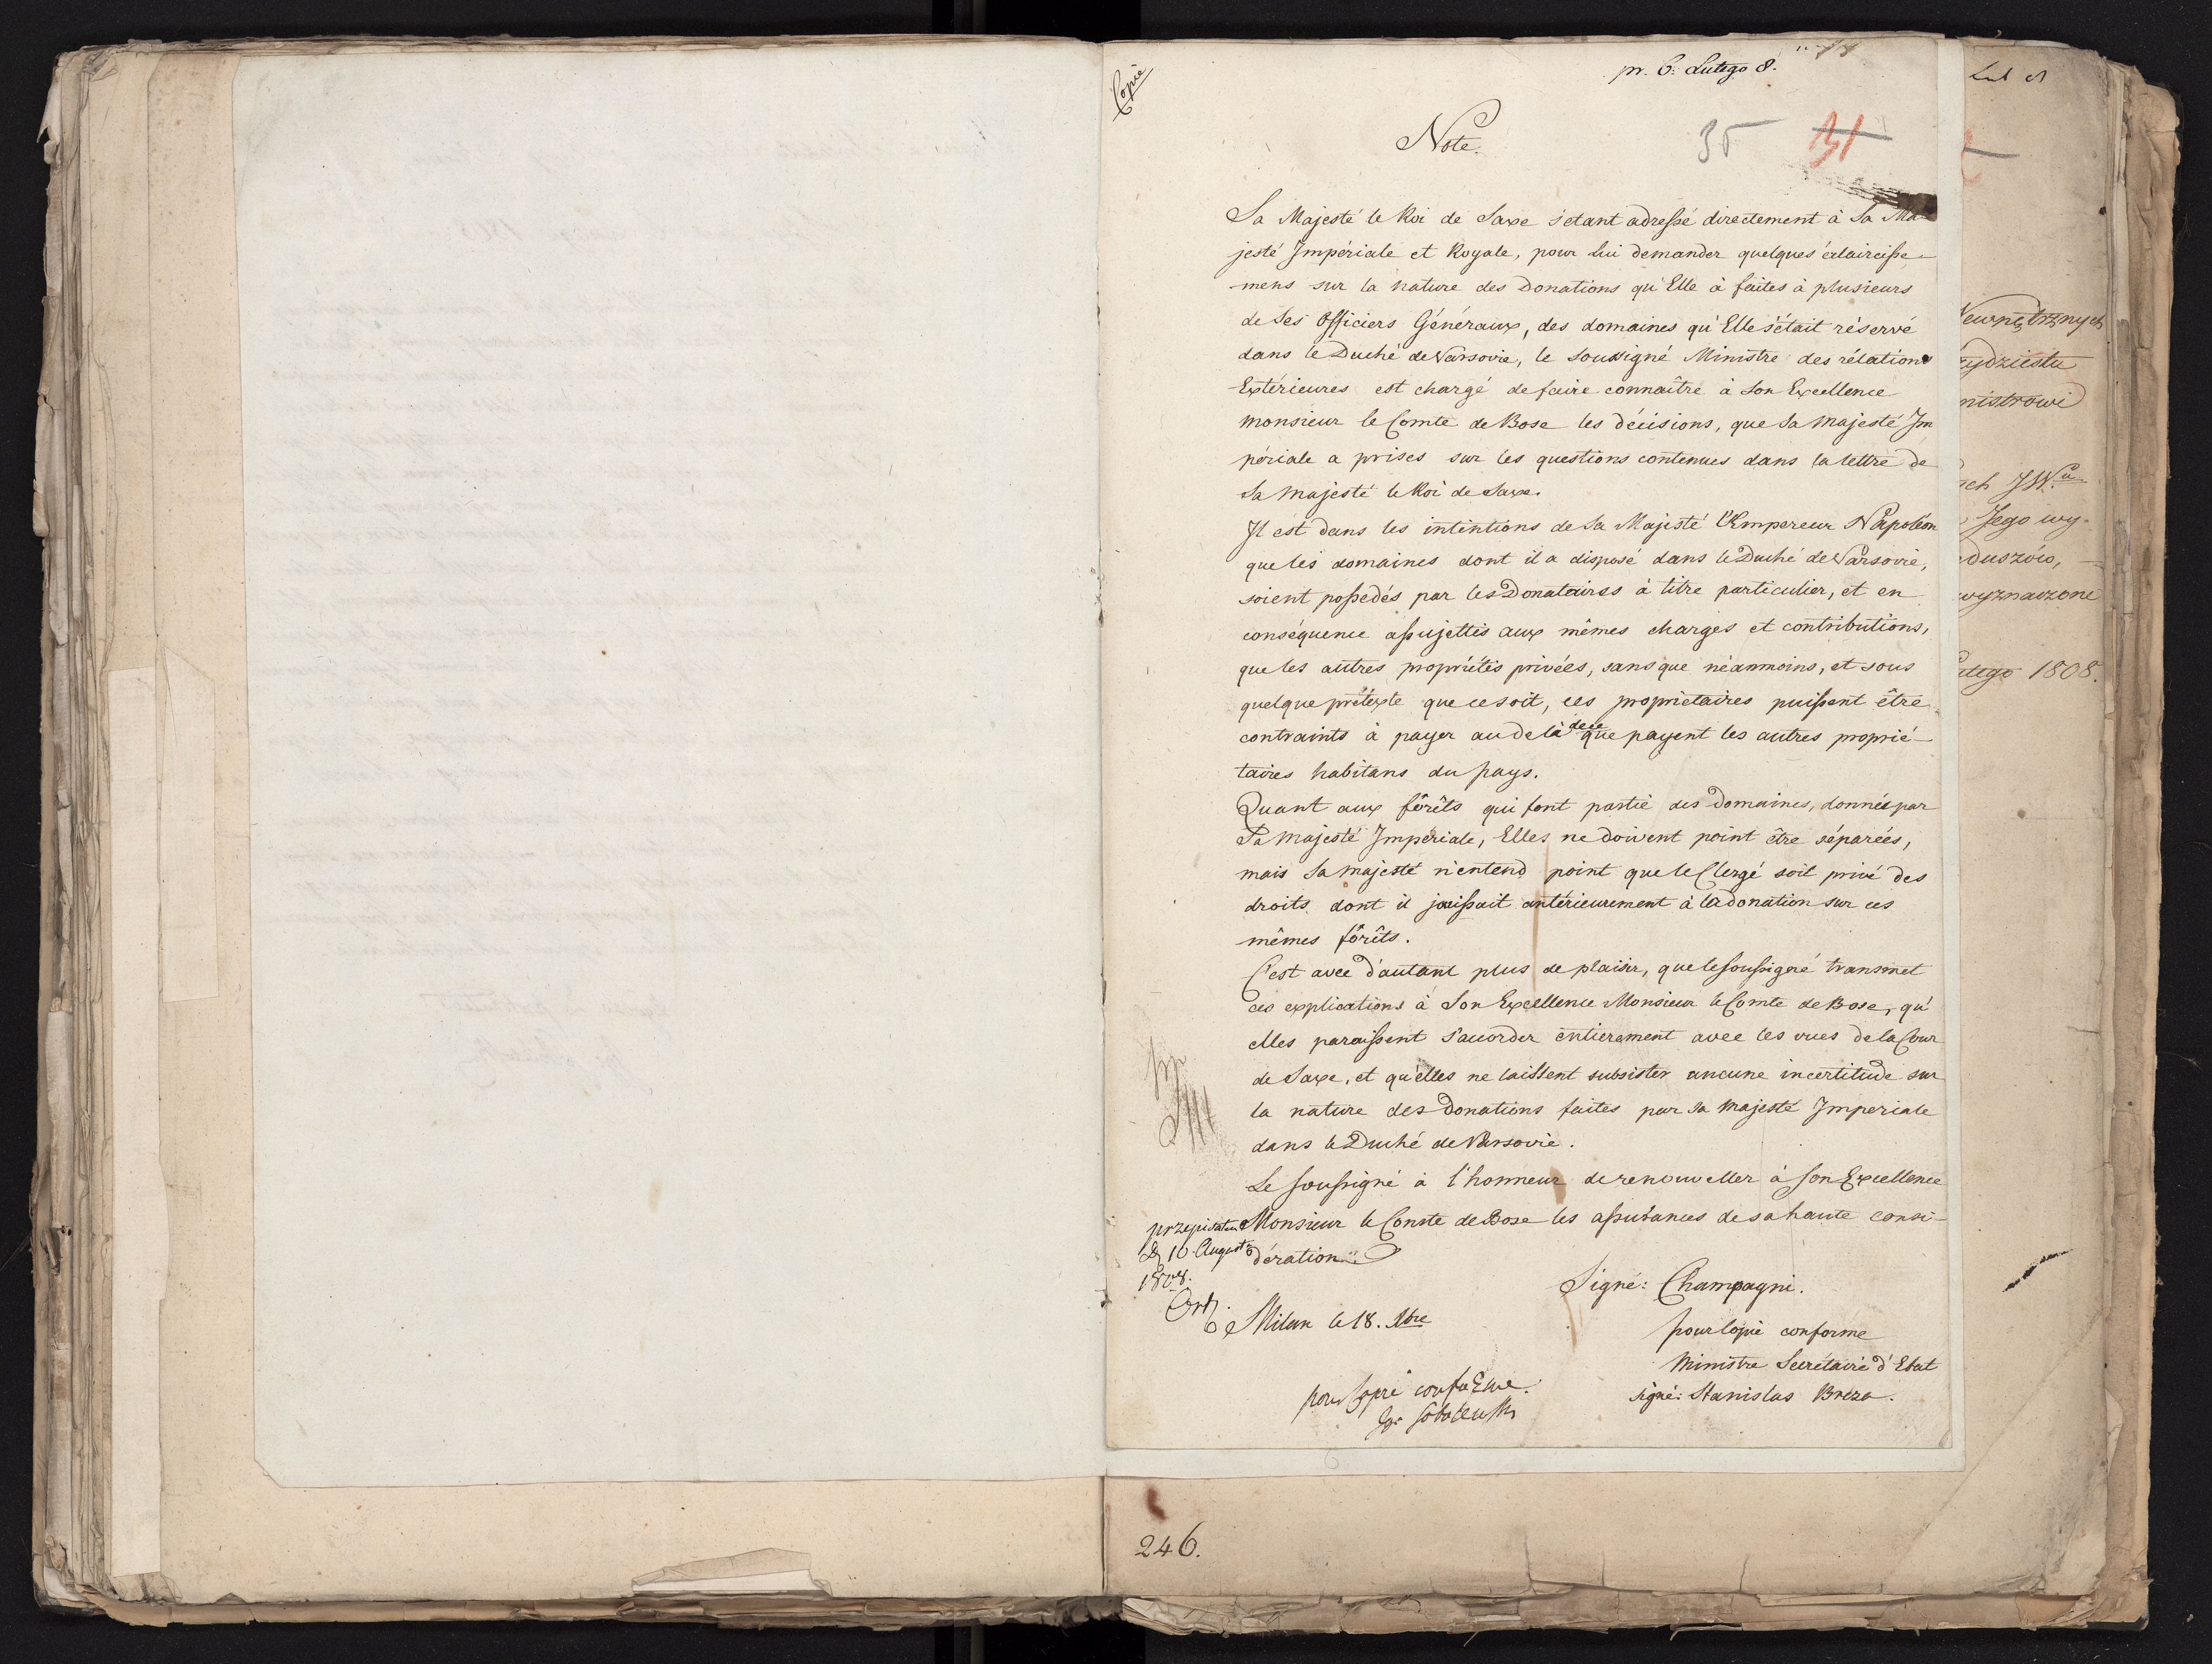 Copie
pr. 6. Lutego 8.
Note.
35 31
Sa Majesté le Roi de Saxe s'etant adressé directement à Sa Ma-
jesté Impériale et Royale, pour Lui demander quelques éclaircisse-
mens sur la nature des Donations qu'Elle à faites à plusieurs
de Ses Officiers Généraux, des domaines qu'Elle s'était réservé
dans le Duché de Varsovie, le soussigné Ministre des rélations
Extérieures est chargé de faire connaître à Son Excellence
monsieur le Comte de Bose les décisions, que Sa Majesté Im
périale a prises sur les questions contenues dans la lettre de
Sa Majesté le Roi de Saxe.
Il est dans les intentions de Sa Majesté l'Empereur Napoléon
que les domaines dont il a disposé dans le Duché de Varsovie,
soient possedés par les Donataires à titre particulier, et en
conséquence assujettis aux mêmes charges et contributions,
que les autres propriétés privées, sans que néanmoins, et sous
quelque prétexte que ce soit, ces propriétaires puissent être
contraints à payer au delà de ce que payent les autres proprié-
taires habitans du pays.
Quant aux fôrêts qui font partie des Domaines, donnés par
Sa Majesté Imperiale, Elles ne doivent point être séparées,
mais Sa Majesté n'entend point que le Clergé soit privé des
droits dont il jouissait antérieurement à la donation sur ces
mêmes fôrêts.
C'est avec d'autant plus de plaisir, que le soussigné transmet
ces explications à Son Excellence Monsieur le Comte de Bose, qu'
elles paraissent s'accorder entierement avec les vues de la Cour
de Saxe, et qu'elles ne laissent subsister aucune incertitude sur
la nature des Donations faites par Sa Majesté Imperiale
dans le Duché de Varsovie.
Le soussigné à l'honneur de renouveller à Son Excellence
Monsieur le Comte de Bose les assurances de sa haute consi-
dération
przepisatem
D 10 Augusta
1808.
Signé: Champagni.
Milan le 18. Xbre
pour Copie conforme
Ministre Secrétaire d'Etat
signé: Stanislas Breza.
pour Copie conforme.
Sobolewski
246.
ewnętrznych
nistrowi
Jego wy-
duszów,
wyznaczone
utego 1808.